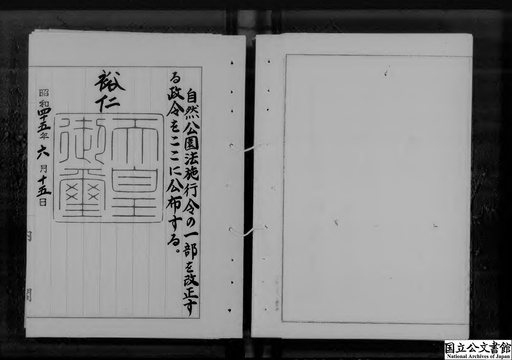 自然公園法施行令の一部を改正す
る政令をここに公布する。
裕仁
天皇
御璽
昭和四十五年六月十五日
国立公文書館
National Archives of Japan